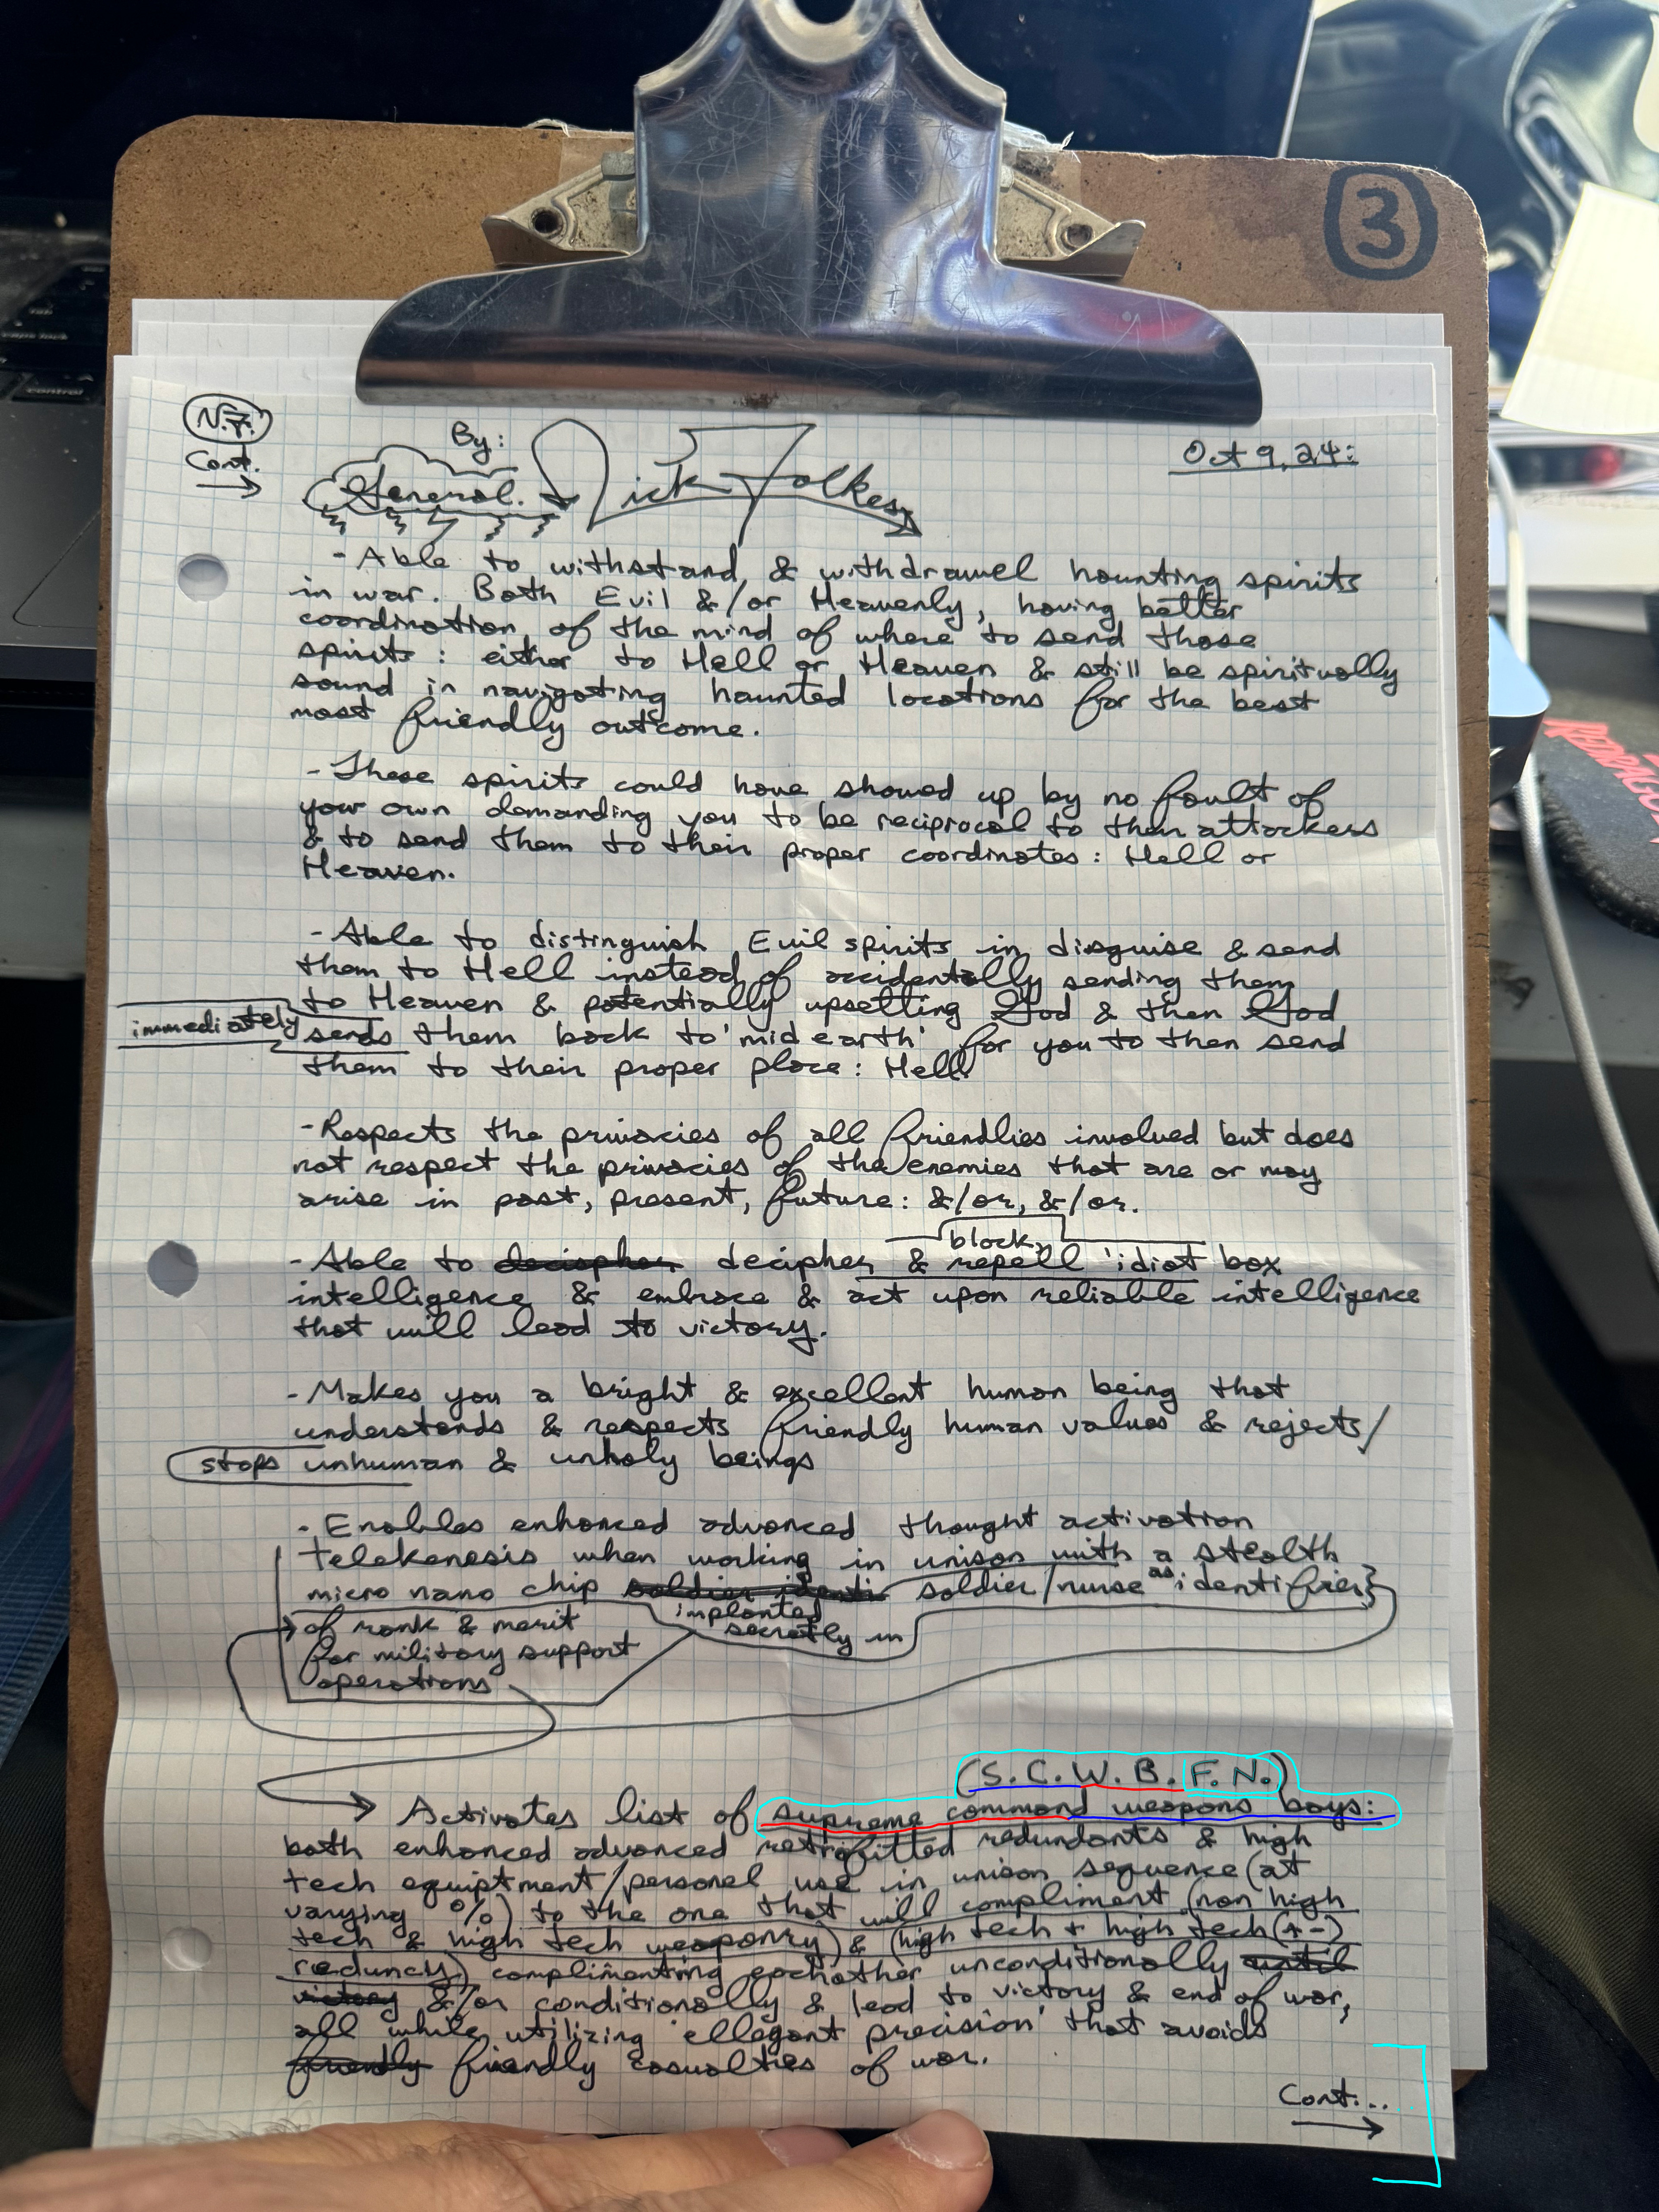 3
N.F.
Cont.
By:
General. Nick Folkes
Oct 9, 24:
- Able to withstand, & withdrawel haunting spirits
in war. Both Evil &/or Heavenly, having better
coordination of the mind of where to send those
spirits: either to Hell or Heaven & still be spiritually
sound in navigating haunted locations for the best
most friendly outcome.
- These spirits could have showed up by no fault of
your own demanding you to be reciprocal to their attackers
& to send them to their proper coordinates: Hell or
Heaven.
- Able to distinguish Evil spirits in disguise & send
them to Hell instead of accidentally sending them
to Heaven & potentially upsetting God & then God
immediately sends them back to 'mid earth' for you to then send
them to their proper place: Hell.
- Respects the privacies of all friendlies involved but does
not respect the privacies of the enemies that are or may
arise in past, present, future: &/or, &/or.
block,
- Able to decipher decipher & repell 'idiot box
intelligence & embrace & act upon reliable intelligence
that will lead to victory.
- Makes you a bright & excellent human being that
understands & respects friendly human values & rejects/
stops unhuman & unholy beings
- Enables enhanced advanced thought activation
telekenesis when working in unison with a stealth
micro nano chip soldier identi soldier/nurse as identifier
implanted
secretly in
of rank & merit
for military support
operations
(S.C.W.B.F.N.)
Activates list of supreme command weapons boys:
both enhanced advanced retrofitted redundants & high
tech equiptment/personel use in unison sequence (at
varying %) to the one that will compliment (non high
tech & high tech weaponry) & (high tech + high tech (+-)
reduncy) complimenting eachother unconditionally until
victory &/or conditionally & lead to victory & end of war,
all while utilizing 'ellegant precision' that avoids
friendly friendly casualties of war.
Cont...
REDRAGON
control